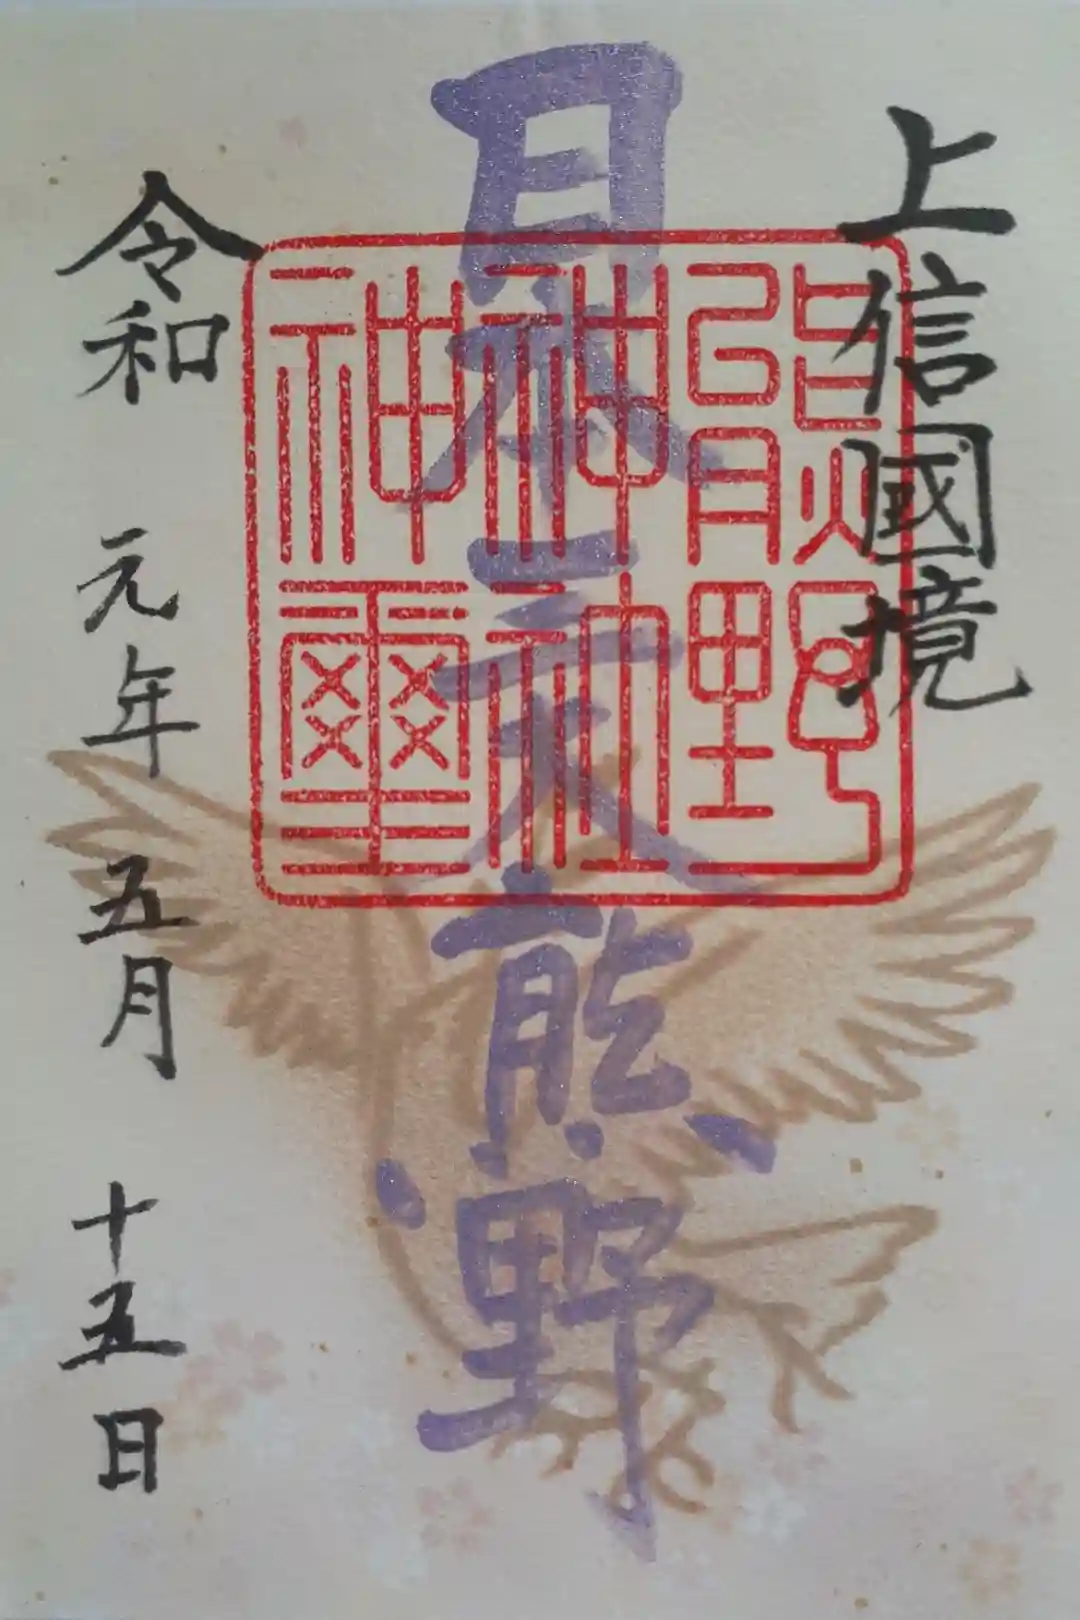 上信國境
日本三大熊野
熊野神社神璽
令和 元年 五月 十五日